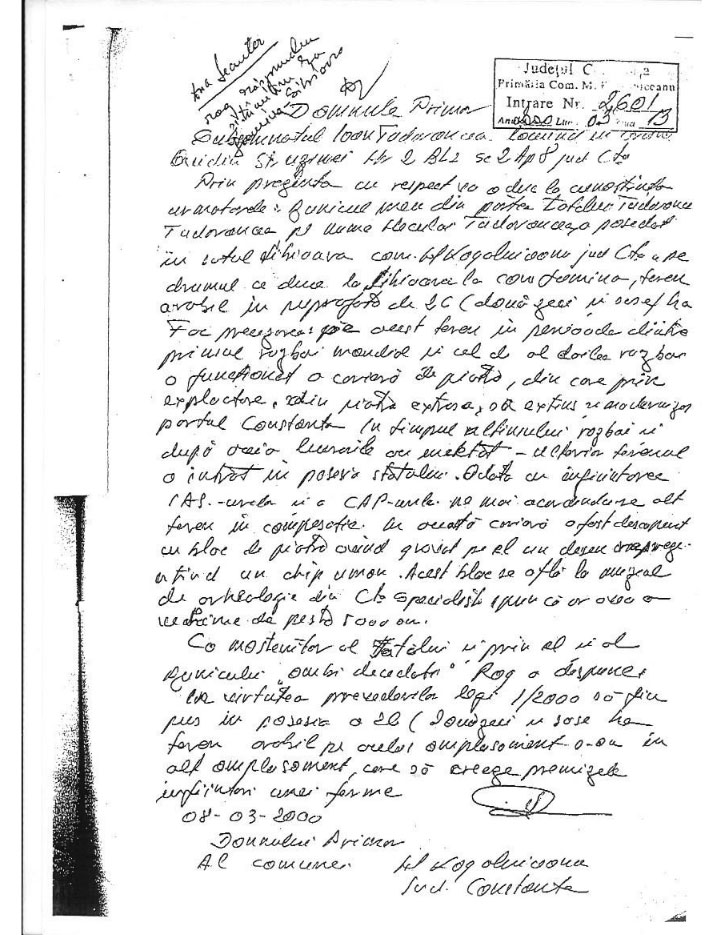 Ana Secutor
rog răspundem
Județul C
Primăria Com. M.
Intrare Nr. 2601
Anul 2000 Luna 03 Ziua 13
Domnule Primar
Subsemnatul Ioan Tudorancea locuind in
Ovidiu Str uzinei Nr 2 BL2 sc 2 Ap 8 jud Cta
Prin prezenta cu respect va aduc la cunostinta
urmatorele: Bunicul meu din partea tatalui Tudorancea
Tudorancea pe nume Neculai Tudorancea, a posedat
in satul Sibioara com. M Kogalniceanu jud Cta pe
drumul ce duce la Sibioara la com. teren
arabil in suprafata de 26 (douăzeci si sase) ha
Fac precizarea pe acest teren in perioada dintre
primul razboi mondial si cel de al doilea razboi
a functionat o carieră de piatră, din care prin
exploatare, din piatra extrasa, s-a extins si modernizat
portul Constanta In timpul ultimului razboi si
după aceia lucrarile au incetat - ulterior terenul
a intrat in posesia statului. Odata cu infiintarea
IAS.-urilor si a CAP-urilor ne mai acordanduse alt
teren in compesatie. In această carieră a fost descoperit
un bloc de piatră avind gravat pe el un desen
un chip uman. Acest bloc se află la muzeul
de arheologie din Cta Specialisti spun că ar avea o
vechime de peste 5000 ani.
Ca mostenitor al Tatalui si prin el si al
Bunicului "ambi decedati" Rog a despune:
In virtutea prevederilor legi 1/2000 să fiu
pus in posesia a 26 (Douăzeci si sase ha
teren arabil pe acelas amplasament s-au in
alt amplasament, care să creeze premizele
infiintari unei ferme
08-03-2000
Domnului Primar
Al comunei M Kogalniceanu
Jud. Constanta